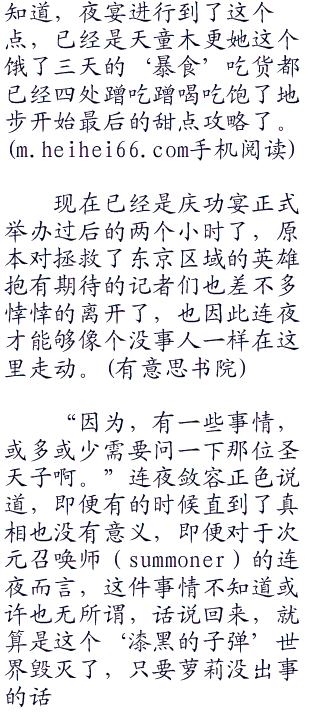 知道，夜宴进行到了这个
点，已经是天童木更她这个
饿了三天的‘暴食’吃货都
已经四处蹭吃蹭喝吃饱了地
步开始最后的甜点攻略了。
(m.heihei66.com手机阅读)
现在已经是庆功宴正式
举办过后的两个小时了，原
本对拯救了东京区域的英雄
抱有期待的记者们也差不多
悻悻的离开了，也因此连夜
才能够像个没事人一样在这
里走动。(有意思书院)
“因为，有一些事情，
或多或少需要问一下那位圣
天子啊。”连夜敛容正色说
道，即便有的时候直到了真
相也没有意义，即便对于次
元召唤师（summoner）的连
夜而言，这件事情不知道或
许也无所谓，话说回来，就
算是这个‘漆黑的子弹’世
界毁灭了，只要萝莉没出事
的话